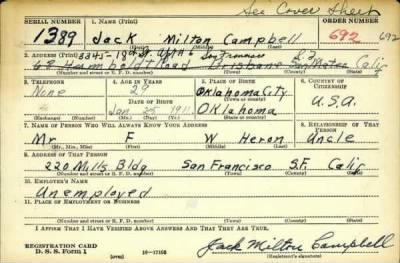 See Cover Sheet
SERIAL NUMBER 1. NAME (Print) ORDER NUMBER
1389 Jack Milton Campbell 692 692
(First) (Middle) (Last)
2. ADDRESS (Print) 3345-18th St Apt 6 San Francisco
68 Humboldt Road Brisbane San Mateo Calif
(Number and street or R. F. D. number) (Town) (County) (State)
3. TELEPHONE 4. AGE IN YEARS 5. PLACE OF BIRTH 6. COUNTRY OF CITIZENSHIP
None 29 Oklahoma City U.S.A.
DATE OF BIRTH
Jan 25 1911 Oklahoma
(Exchange) (Number) (Mo.) (Day) (Yr.) (State or country)
7. NAME OF PERSON WHO WILL ALWAYS KNOW YOUR ADDRESS 8. RELATIONSHIP OF THAT PERSON
Mr F W Heron Uncle
(Mr., Mrs., Miss) (First) (Middle) (Last)
9. ADDRESS OF THAT PERSON
220 Mills Bldg San Francisco S.F. Calif
(Number and street or R. F. D. number) (Town) (County) (State)
10. EMPLOYER'S NAME
Unemployed
11. PLACE OF EMPLOYMENT OR BUSINESS
(Number and street or R. F. D. number) (Town) (County) (State)
I AFFIRM THAT I HAVE VERIFIED ABOVE ANSWERS AND THAT THEY ARE TRUE.
REGISTRATION CARD
D. S. S. Form 1 (over) 16-17105 Jack Milton Campbell
(Registrant's signature)